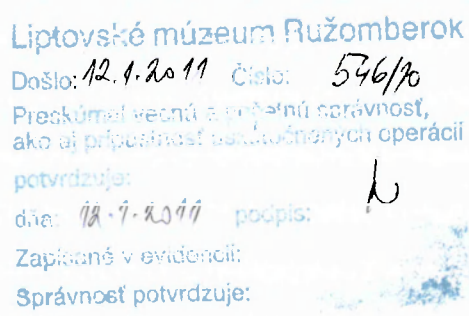 Liptovské múzeum Ružomberok
Došlo: 12.1.2011 Číslo: 546/10
Preskúmal vecnú a početnú správnosť,
ako aj prípustnosť uskutočnených operácií
potvrdzuje:
dňa: 12.1.2011 podpis:
Zapísané v evidencii:
Správnosť potvrdzuje: